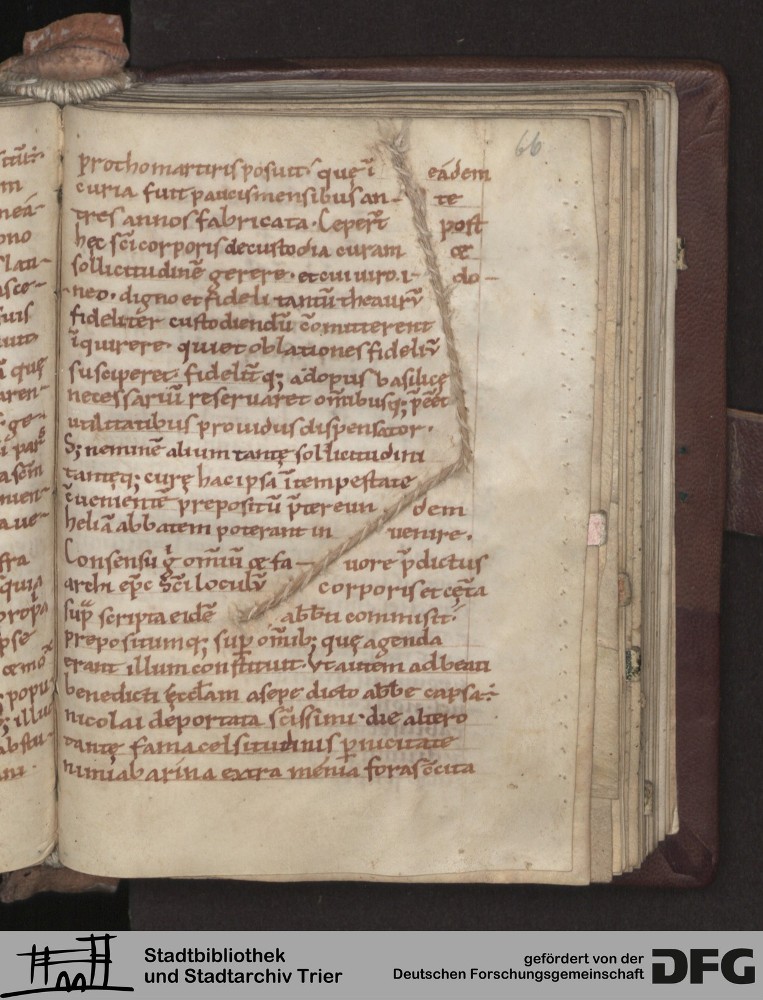 66
prothomartiris posuit· quę ī eádem
curia fuit paucis mensibus an- te
tres annos fabricata· Ceper̄t post
hęc sc̄i corporis de custodia curam œ
sollicitudinē gerere· et cui uiro i- do-
neo· digno et fideli tantū thesaurū
fideliter custodiendū cōmitterent
īquirere· qui et oblationes fideliū
susciperet· fidelit̄q; ad opus basilicę
necessariū reseruaret om̄ibusq; p̄eēt
utilitatibus prouidus dispensator·
S; neminē alium tantę sollicitudini
tantęq; curę hac ipsa ītempestate
cūenientē prepositū p̄ter eun dem
heliā abbatem poterant in uenire·
Consensu g̊ om̄iū œ fa- uore p̄dictus
archi ep̄c sc̄i loculū corporis et cęt̄a
sup̄ scripta eidē abb̄ti commisit·
prepositumq; sup̄ om̄ib; quę agenda
erant illum constituit· Vt autem ad beati
benedicti ęccl̄am a sepe dicto abb̄e capsa·
nicolai deportata sc̄issimi· die altero
tantę fama celsitudinis p̄nicitate
nimia barina extra mēnia foras ēcita
Stadtbibliothek
und Stadtarchiv Trier
gefördert von der
Deutschen Forschungsgemeinschaft
DFG